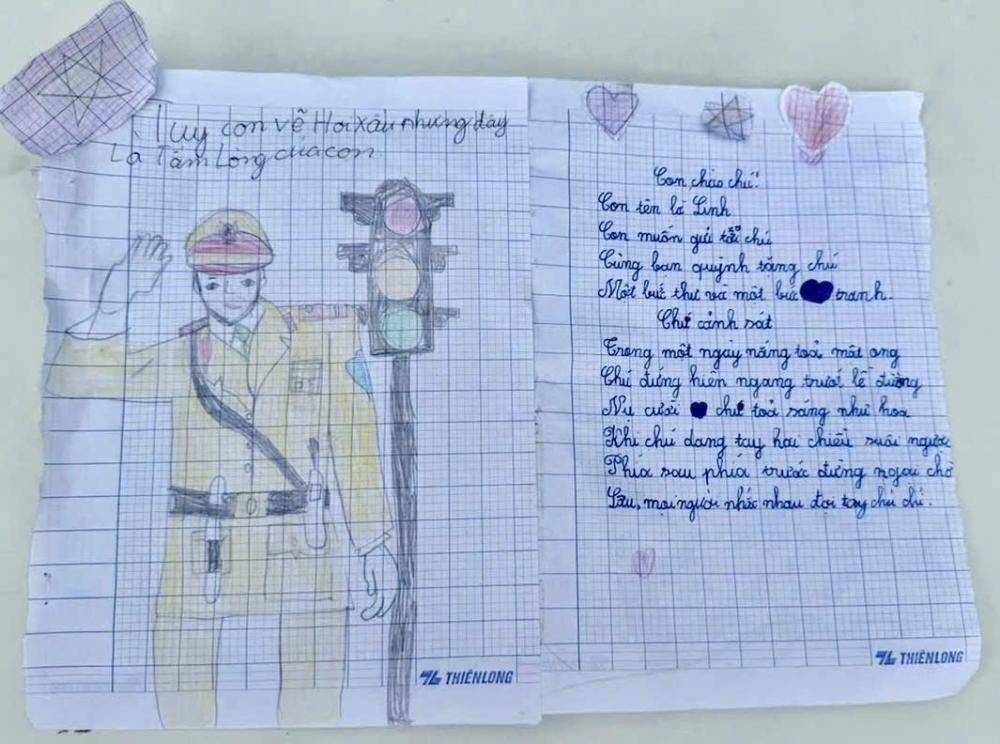 Tuy con vẽ Hơi Xấu nhưng đây
Là Tấm Lòng của con
THIÊN LONG
Con chào chú!
Con tên là Linh
Con muốn gửi tới chú
Cùng bạn quỳnh tặng chú
Một bức thư và một bức tranh.
Chú cảnh sát
Trong một ngày nắng toả mật ong
Chú đứng hiên ngang trướt lề đường
Nụ cười chú toả sáng như hoa
Khi chú dang tay hai chiều xuôi ngược
Phía sau phía trước đừng ngoại chờ
Lâu, mọi người nhắc nhau đợi tay chú chỉ.
THIÊN LONG